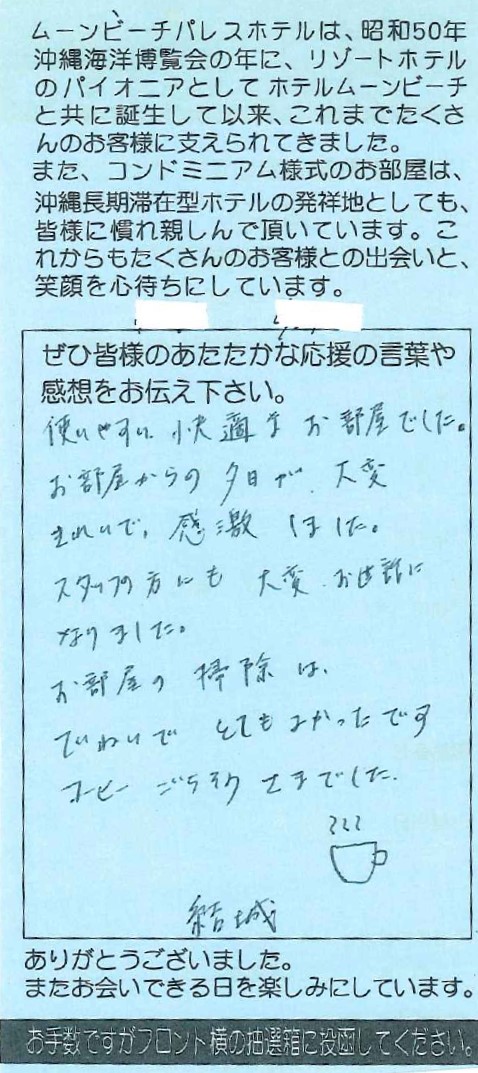 ムーンビーチパレスホテルは、昭和50年
沖縄海洋博覧会の年に、リゾートホテル
のパイオニアとしてホテルムーンビーチ
と共に誕生して以来、これまでたくさ
んのお客様に支えられてきました。
また、コンドミニアム様式のお部屋は、
沖縄長期滞在型ホテルの発祥地としても、
皆様に慣れ親しんで頂いています。こ
れからもたくさんのお客様との出会いと、
笑顔を心待ちにしています。
ぜひ皆様のあたたかな応援の言葉や
感想をお伝え下さい。
使いやすい快適なお部屋でした。
お部屋からの夕日が、大変
きれいで、感激しました。
スタッフの方にも大変お世話に
なりました。
お部屋の掃除は、
ていねいでとてもよかったです
コーヒーごちそうさまでした.
結城
ありがとうございました。
またお会いできる日を楽しみにしています。
お手数ですがフロント横の抽選箱に投函してください。